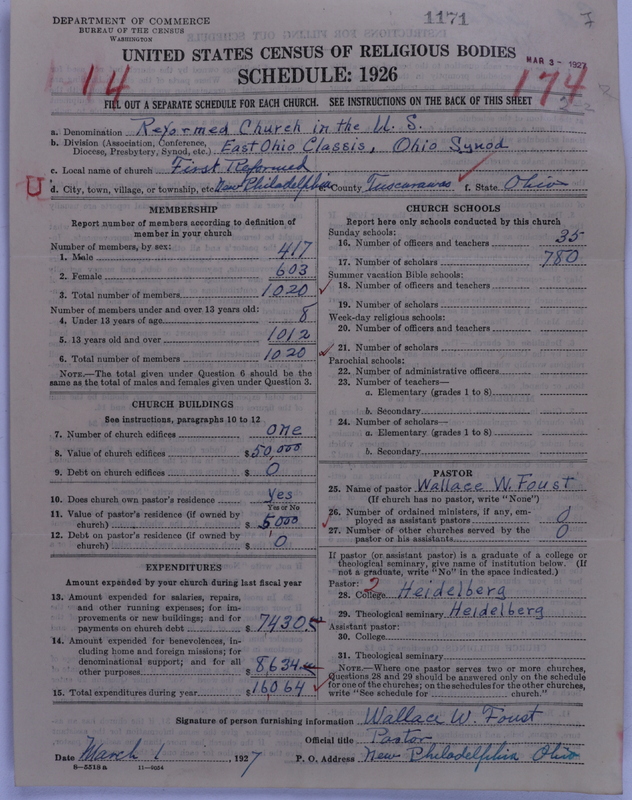 DEPARTMENT OF COMMERCE
BUREAU OF THE CENSUS
WASHINGTON
1171
7
UNITED STATES CENSUS OF RELIGIOUS BODIES
SCHEDULE: 1926
MAR 3 - 1927
114
174
FILL OUT A SEPARATE SCHEDULE FOR EACH CHURCH. SEE INSTRUCTIONS ON THE BACK OF THIS SHEET
a. Denomination Reformed Church in the U. S.
b. Division (Association, Conference, Diocese, Presbytery, Synod, etc.) East Ohio Classis, Ohio Synod
c. Local name of church First Reformed
U d. City, town, village, or township, etc. New Philadelphia e. County Tuscarawas f. State Ohio
MEMBERSHIP
Report number of members according to definition of
member in your church
Number of members, by sex:
1. Male 417
2. Female 603
3. Total number of members 1020
Number of members under and over 13 years old:
4. Under 13 years of age 8
5. 13 years old and over 1012
6. Total number of members 1020
NOTE.—The total given under Question 6 should be the
same as the total of males and females given under Question 3.
CHURCH BUILDINGS
See instructions, paragraphs 10 to 12
7. Number of church edifices one
8. Value of church edifices $50,000
9. Debt on church edifices $ 0
10. Does church own pastor's residence Yes
Yes or No
11. Value of pastor's residence (if owned by
church) $ 5000
12. Debt on pastor's residence (if owned by
church) $ 0
EXPENDITURES
Amount expended by your church during last fiscal year
13. Amount expended for salaries, repairs,
and other running expenses; for im-
provements or new buildings; and for
payments on church debt $ 7430.
14. Amount expended for benevolences, in-
cluding home and foreign missions; for
denominational support; and for all
other purposes $ 8634
15. Total expenditures during year $16064
CHURCH SCHOOLS
Report here only schools conducted by this church
Sunday schools:
16. Number of officers and teachers 35
17. Number of scholars 780
Summer vacation Bible schools:
18. Number of officers and teachers
19. Number of scholars
Week-day religious schools:
20. Number of officers and teachers
21. Number of scholars
Parochial schools:
22. Number of administrative officers
23. Number of teachers—
a. Elementary (grades 1 to 8)
b. Secondary
24. Number of scholars—
a. Elementary (grades 1 to 8)
b. Secondary
PASTOR
25. Name of pastor Wallace W. Foust
(If church has no pastor, write "None")
26. Number of ordained ministers, if any, em-
ployed as assistant pastors 0
27. Number of other churches served by the
pastor or his assistants 0
If pastor (or assistant pastor) is a graduate of a college or
theological seminary, give name of institution below. (If
not a graduate, write "No" in the space indicated.)
Pastor: 2
28. College Heidelberg
29. Theological seminary Heidelberg
Assistant pastor:
30. College
31. Theological seminary
NOTE.—Where one pastor serves two or more churches,
Questions 28 and 29 should be answered only on the schedule
for one of the churches; on the schedules for the other churches,
write "See schedule for church."
Signature of person furnishing information Wallace W. Foust
Official title Pastor
Date March 1, 1927 P. O. Address New Philadelphia Ohio
8—5518 a 11—9054